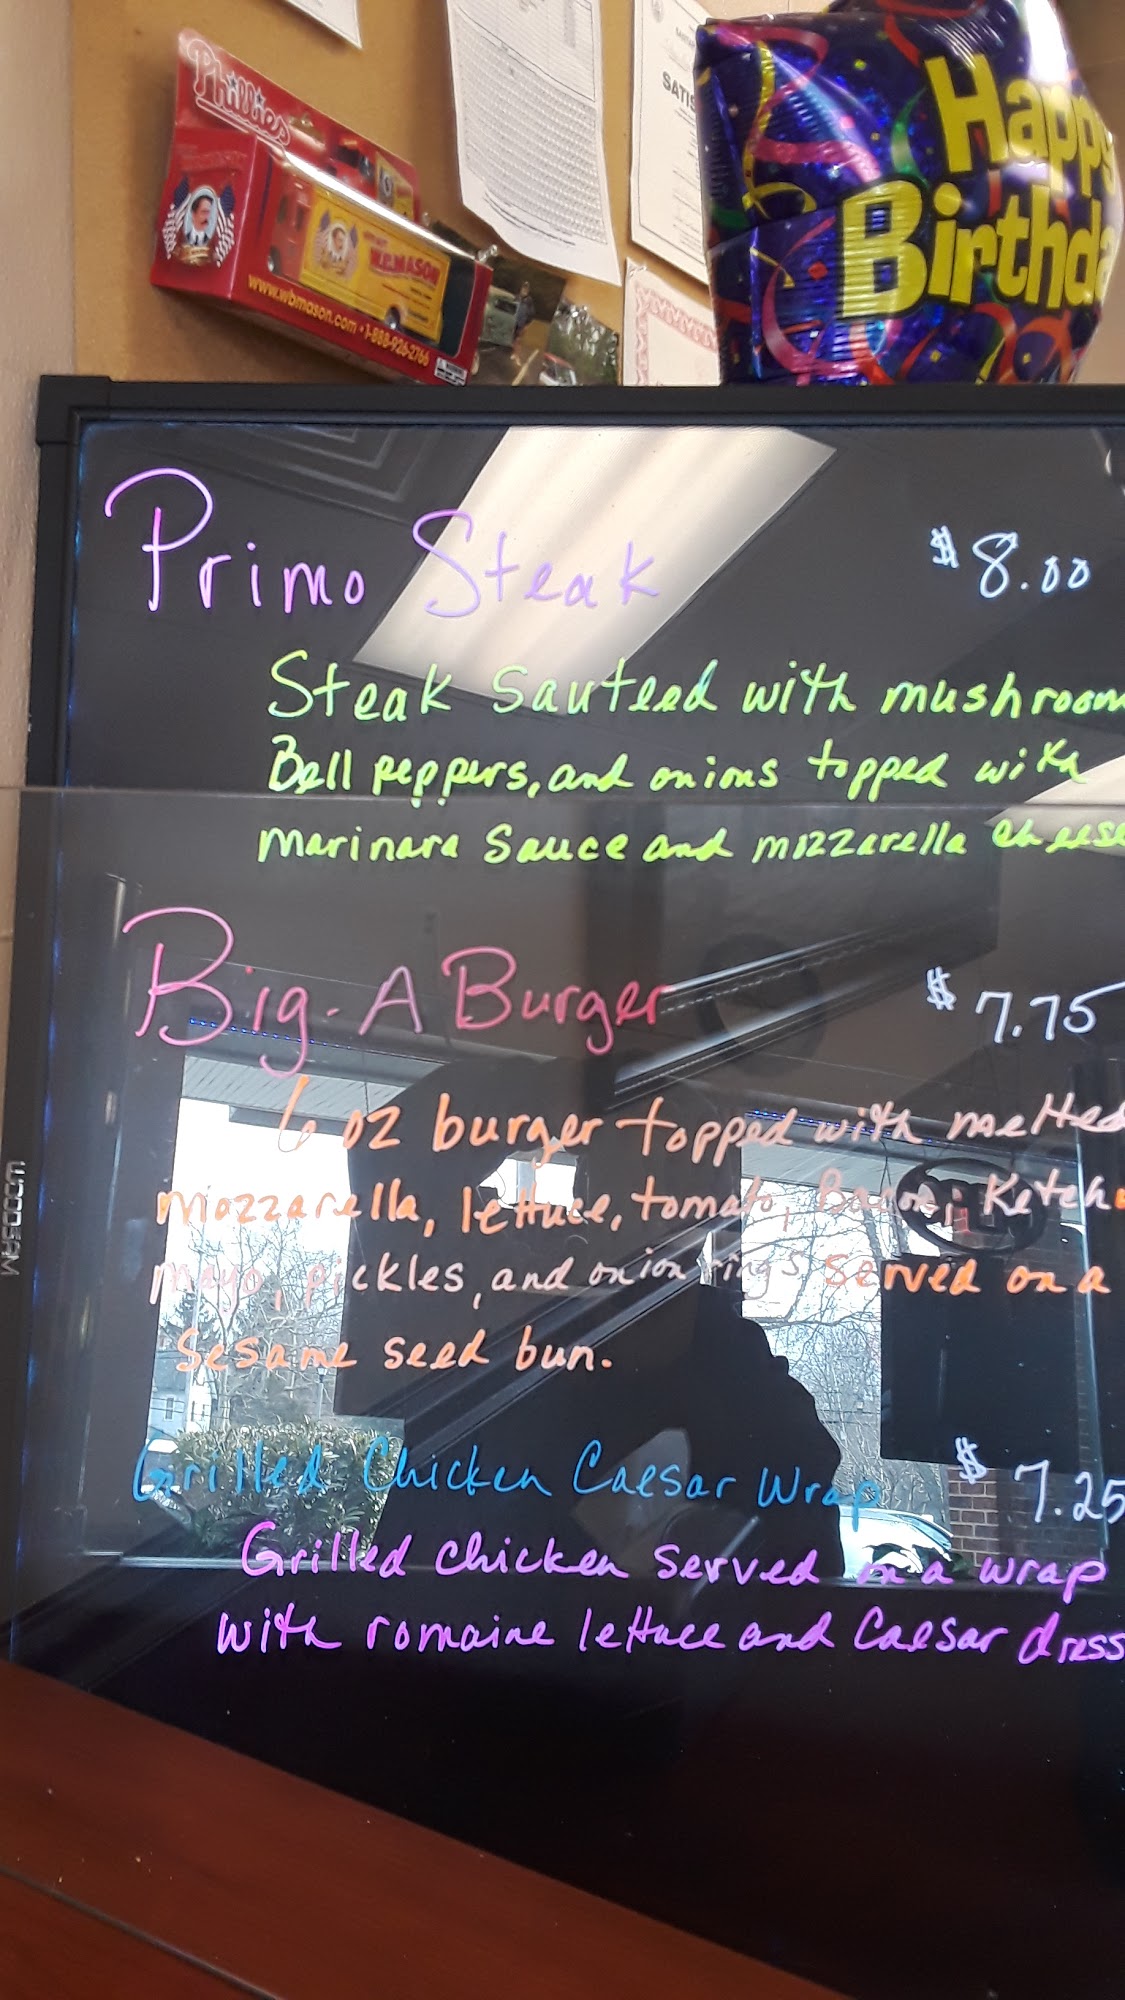 Phillies
W.B. MASON
www.wbmason.com • 1-888-926-2766
SATIS
Happy
Birthda
Primo Steak $8.00
Steak Sauteed with mushroom
Bell peppers, and onions topped with
Marinara Sauce and mozzarella cheese
Big-A Burger $7.75
6 oz burger topped with melted
mozzarella, lettuce, tomato, Bacon, Ketchu
mayo, pickles, and onion rings served on a
Sesame seed bun.
Grilled Chicken Caesar Wrap $7.25
Grilled chicken served on a wrap
with romaine lettuce and Caesar dress
WOODSAM